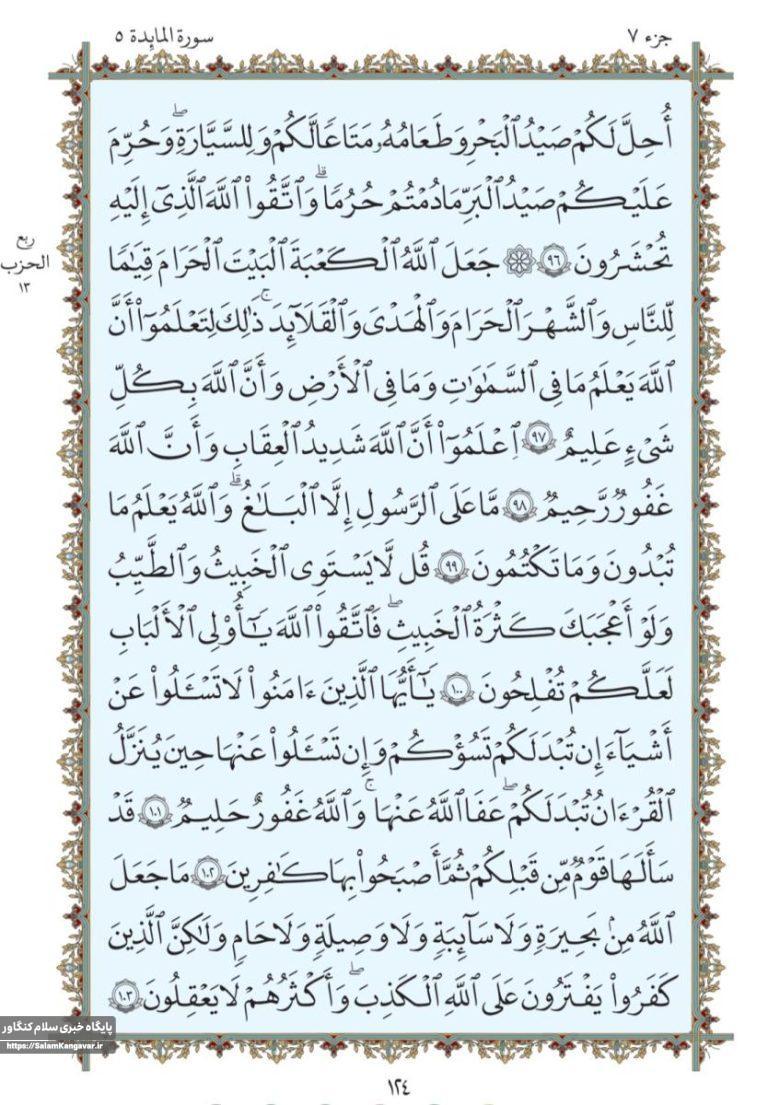 جزء ٧
سورة المائدة ٥
أُحِلَّ لَكُمْ صَيْدُ ٱلْبَحْرِ وَطَعَامُهُۥ مَتَٰعًا لَّكُمْ وَلِلسَّيَّارَةِۖ وَحُرِّمَ
عَلَيْكُمْ صَيْدُ ٱلْبَرِّ مَا دُمْتُمْ حُرُمًاۗ وَٱتَّقُوا۟ ٱللَّهَ ٱلَّذِىٓ إِلَيْهِ
تُحْشَرُونَ ٩٦ ۞ جَعَلَ ٱللَّهُ ٱلْكَعْبَةَ ٱلْبَيْتَ ٱلْحَرَامَ قِيَٰمًا
ربع
الحزب
١٣
لِّلنَّاسِ وَٱلشَّهْرَ ٱلْحَرَامَ وَٱلْهَدْىَ وَٱلْقَلَٰٓئِدَۚ ذَٰلِكَ لِتَعْلَمُوٓا۟ أَنَّ
ٱللَّهَ يَعْلَمُ مَا فِى ٱلسَّمَٰوَٰتِ وَمَا فِى ٱلْأَرْضِ وَأَنَّ ٱللَّهَ بِكُلِّ
شَىْءٍ عَلِيمٌ ٩٧ ٱعْلَمُوٓا۟ أَنَّ ٱللَّهَ شَدِيدُ ٱلْعِقَابِ وَأَنَّ ٱللَّهَ
غَفُورٌ رَّحِيمٌ ٩٨ مَّا عَلَى ٱلرَّسُولِ إِلَّا ٱلْبَلَٰغُۗ وَٱللَّهُ يَعْلَمُ مَا
تُبْدُونَ وَمَا تَكْتُمُونَ ٩٩ قُل لَّا يَسْتَوِى ٱلْخَبِيثُ وَٱلطَّيِّبُ
وَلَوْ أَعْجَبَكَ كَثْرَةُ ٱلْخَبِيثِۚ فَٱتَّقُوا۟ ٱللَّهَ يَٰٓأُو۟لِى ٱلْأَلْبَٰبِ
لَعَلَّكُمْ تُفْلِحُونَ ١٠٠ يَٰٓأَيُّهَا ٱلَّذِينَ ءَامَنُوا۟ لَا تَسْـَٔلُوا۟ عَنْ
أَشْيَآءَ إِن تُبْدَ لَكُمْ تَسُؤْكُمْ وَإِن تَسْـَٔلُوا۟ عَنْهَا حِينَ يُنَزَّلُ
ٱلْقُرْءَانُ تُبْدَ لَكُمْۖ عَفَا ٱللَّهُ عَنْهَاۚ وَٱللَّهُ غَفُورٌ حَلِيمٌ ١٠١ قَدْ
سَأَلَهَا قَوْمٌ مِّن قَبْلِكُمْ ثُمَّ أَصْبَحُوا۟ بِهَا كَٰفِرِينَ ١٠٢ مَا جَعَلَ
ٱللَّهُ مِنۢ بَحِيرَةٍ وَلَا سَآئِبَةٍ وَلَا وَصِيلَةٍ وَلَا حَامٍ وَلَٰكِنَّ ٱلَّذِينَ
كَفَرُوا۟ يَفْتَرُونَ عَلَى ٱللَّهِ ٱلْكَذِبَۖ وَأَكْثَرُهُمْ لَا يَعْقِلُونَ ١٠٣
پایگاه خبری سلام کنگاور
https://SalamKangavar.ir
١٢٤